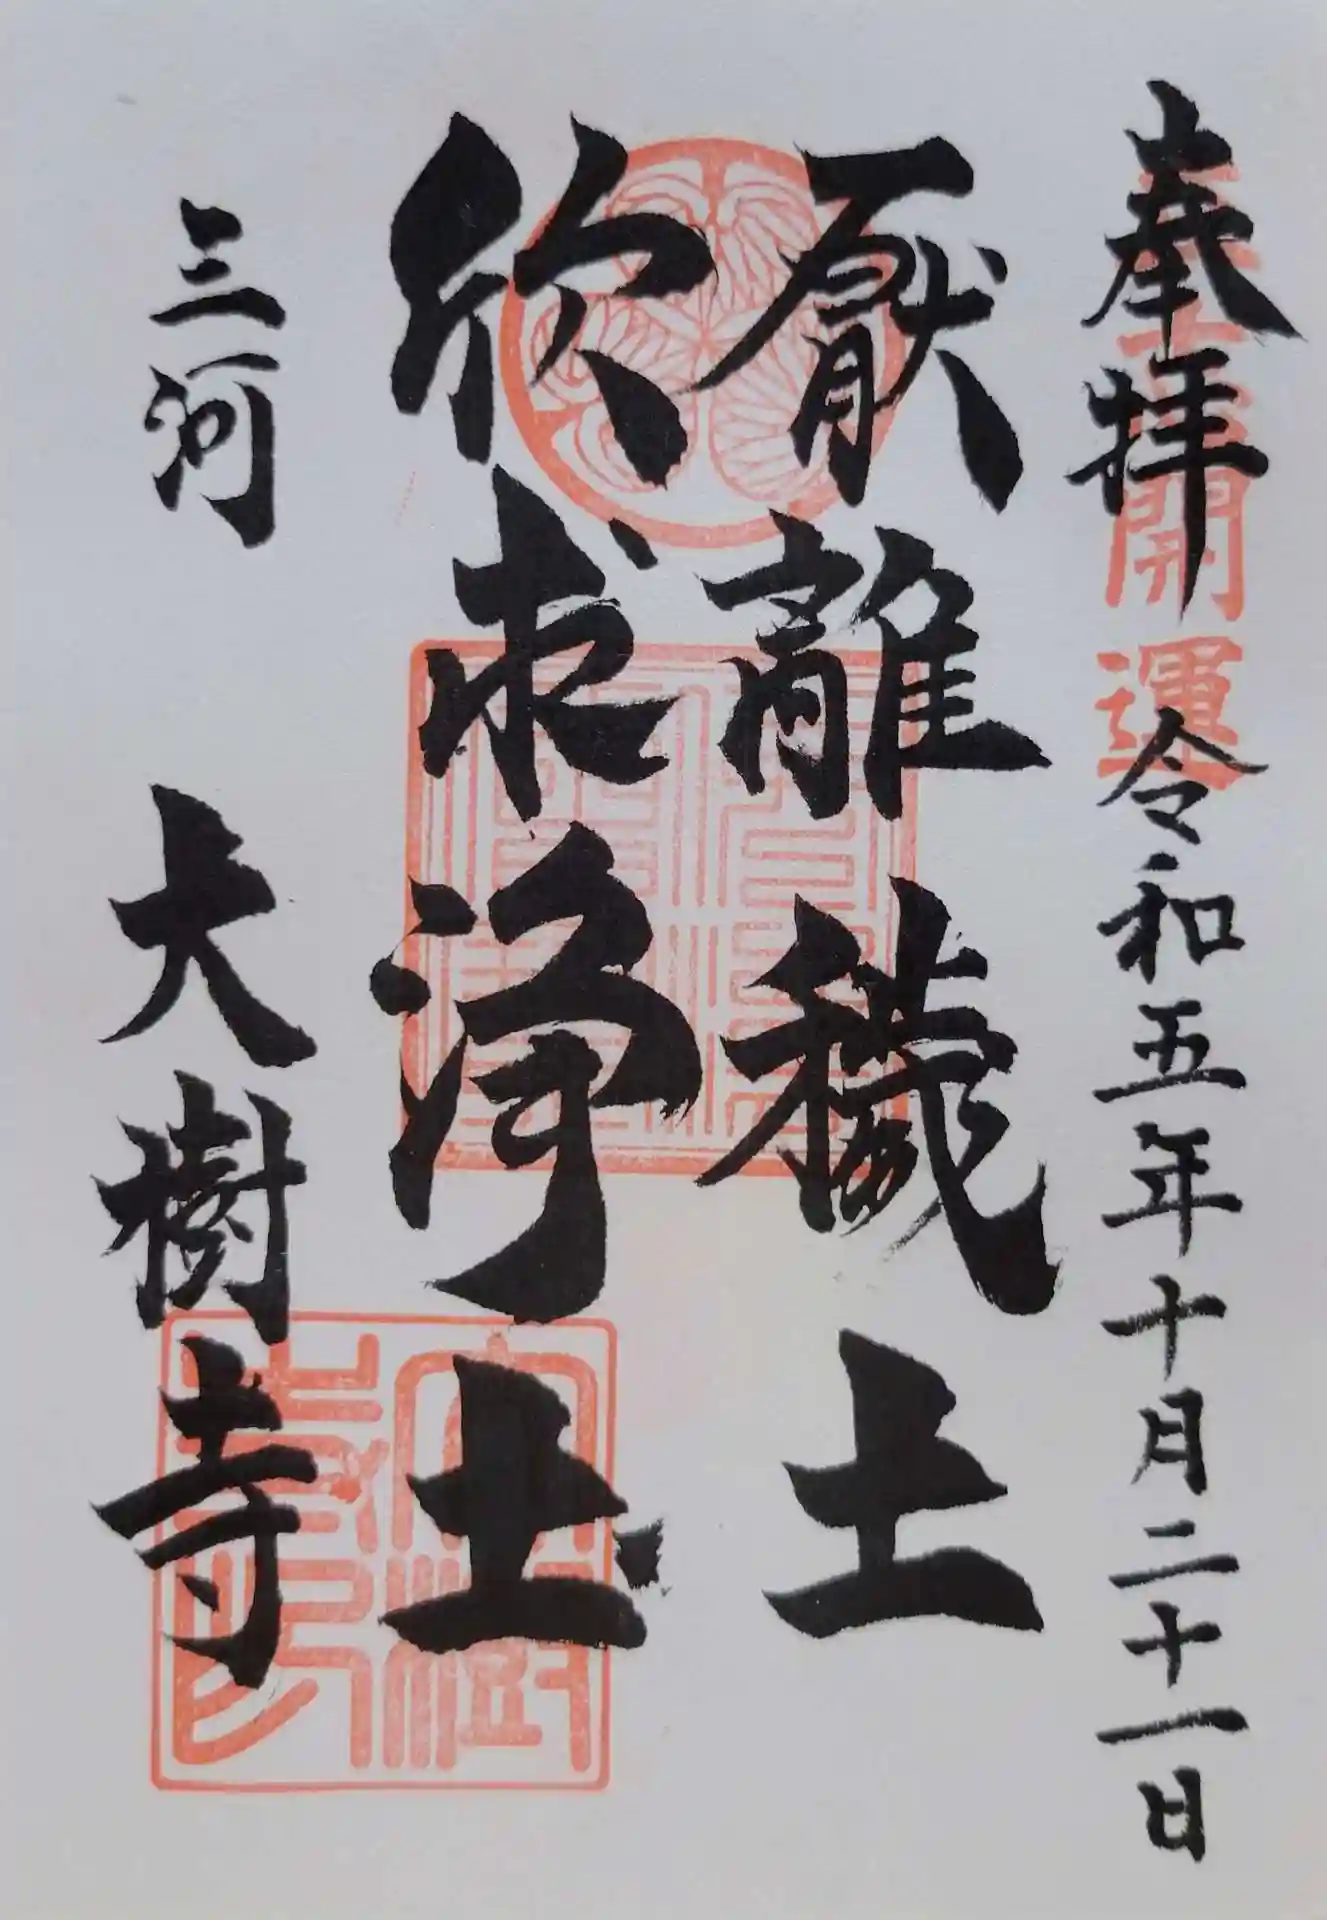 奉拝 令和五年十月二十一日
開運
厭離穢土
欣求浄土
三河 大樹寺